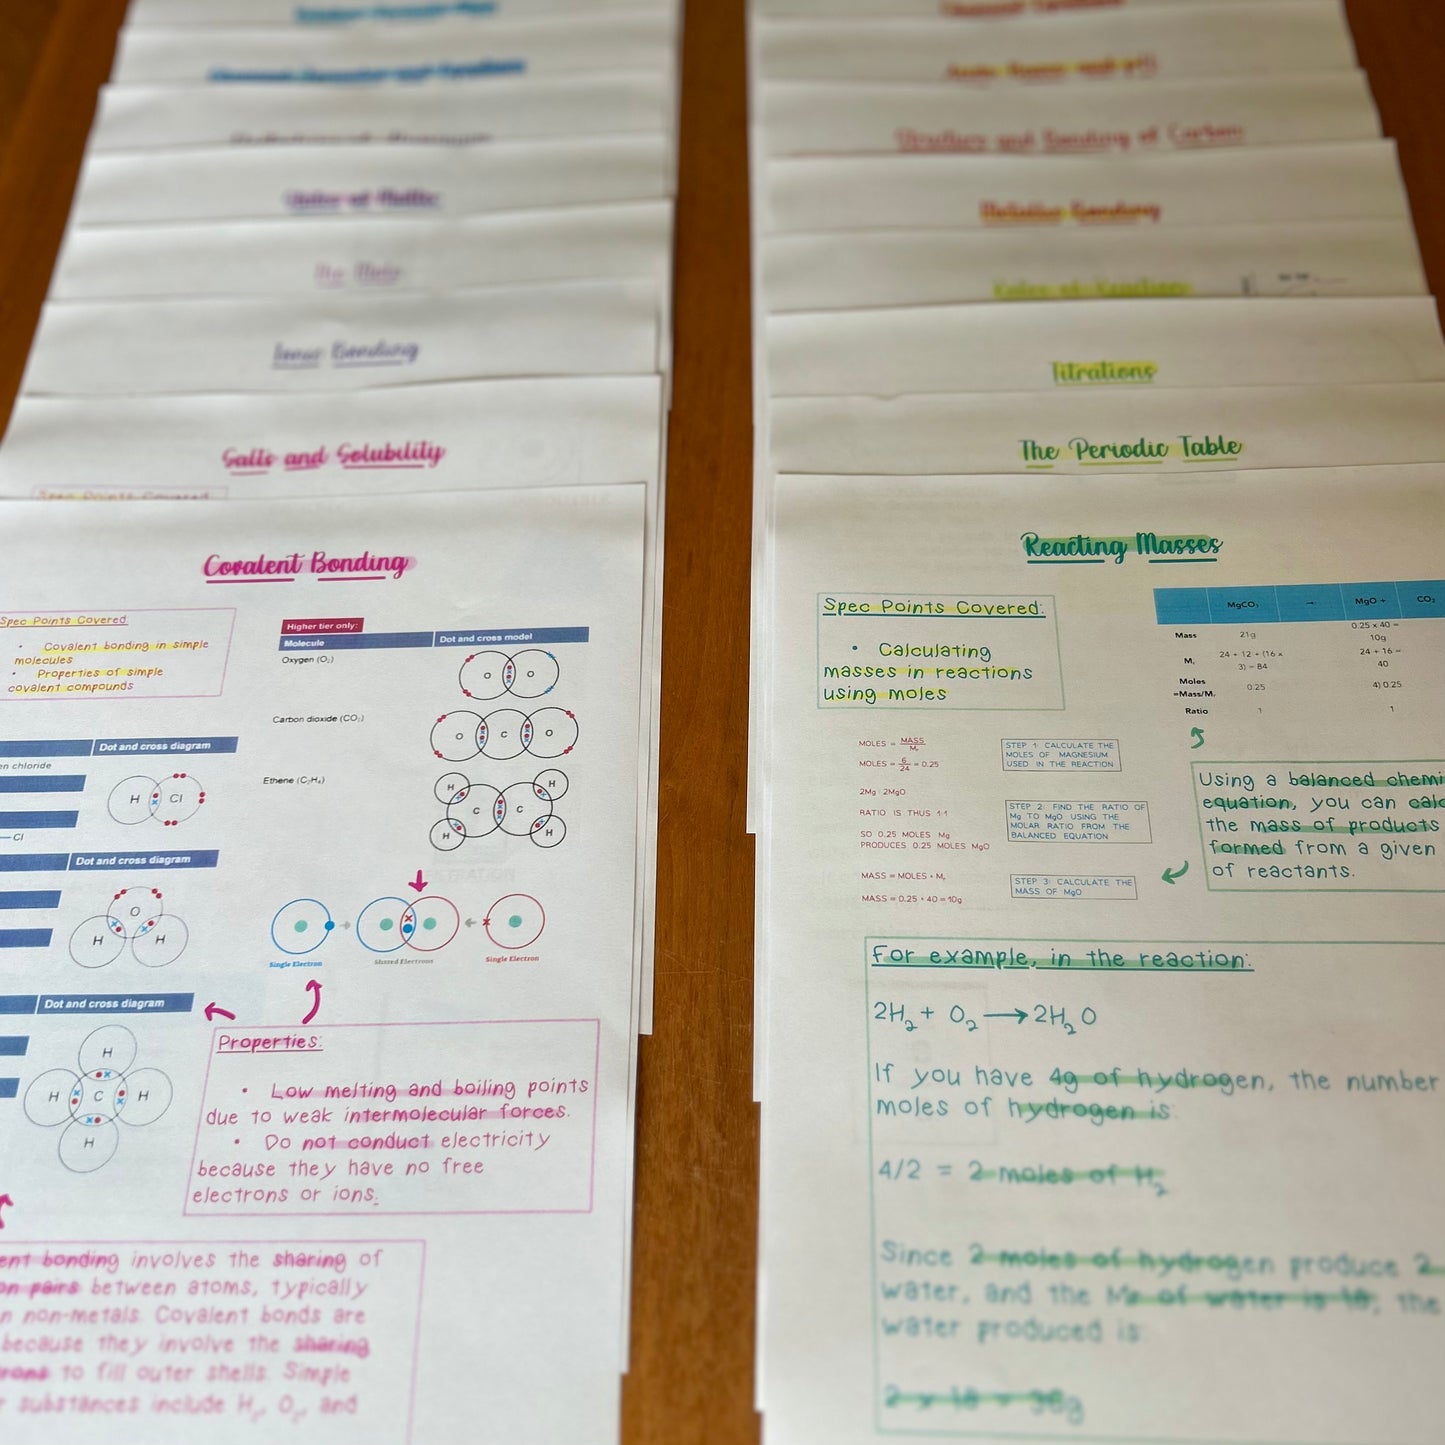 Units of Matter
The Mole
Ionic Bonding
Salts and Solubility
Spec Points Covered
Covalent Bonding
Spec Points Covered:
• Covalent bonding in simple
molecules
• Properties of simple
covalent compounds
Higher tier only:
Molecule
Dot and cross model
Oxygen (O₂)
O O
Carbon dioxide (CO₂)
O C O
Ethene (C₂H₄)
H H
C C
H H
Dot and cross diagram
en chloride
H Cl
— Cl
Dot and cross diagram
O
H H
Single Electron
Shared Electrons
Single Electron
Dot and cross diagram
H
H C H
H
Properties:
• Low melting and boiling points
due to weak intermolecular forces.
• Do not conduct electricity
because they have no free
electrons or ions.
ent bonding involves the sharing of
on pairs between atoms, typically
n non-metals. Covalent bonds are
because they involve the sharing
rons to fill outer shells. Simple
r substances include H₂, O₂, and
Structure and Bonding of Carbon
Metallic Bonding
Rates of Reaction
Titrations
The Periodic Table
Reacting Masses
Spec Points Covered:
• Calculating
masses in reactions
using moles
MgCO₃ → MgO + CO₂
Mass 21g 0.25 x 40 =
10g
Mᵣ 24 + 12 + (16 x
3) = 84
24 + 16 =
40
Moles
=Mass/Mᵣ 0.25 4) 0.25
Ratio 1 1
MOLES = MASS
Mᵣ
MOLES = 6/24 = 0.25
2Mg : 2MgO
RATIO IS THUS 1:1
SO 0.25 MOLES Mg
PRODUCES 0.25 MOLES MgO
MASS = MOLES × Mᵣ
MASS = 0.25 × 40 = 10g
STEP 1: CALCULATE THE
MOLES OF MAGNESIUM
USED IN THE REACTION
STEP 2: FIND THE RATIO OF
Mg TO MgO USING THE
MOLAR RATIO FROM THE
BALANCED EQUATION
STEP 3: CALCULATE THE
MASS OF MgO
Using a balanced chemi
equation, you can calc
the mass of products
formed from a given
of reactants.
For example, in the reaction:
2H₂ + O₂ → 2H₂O
If you have 4g of hydrogen, the number
moles of hydrogen is:
4/2 = 2 moles of H₂
Since 2 moles of hydrogen produce 2
water, and the Mr of water is 18, the
water produced is:
2 x 18 = 36g